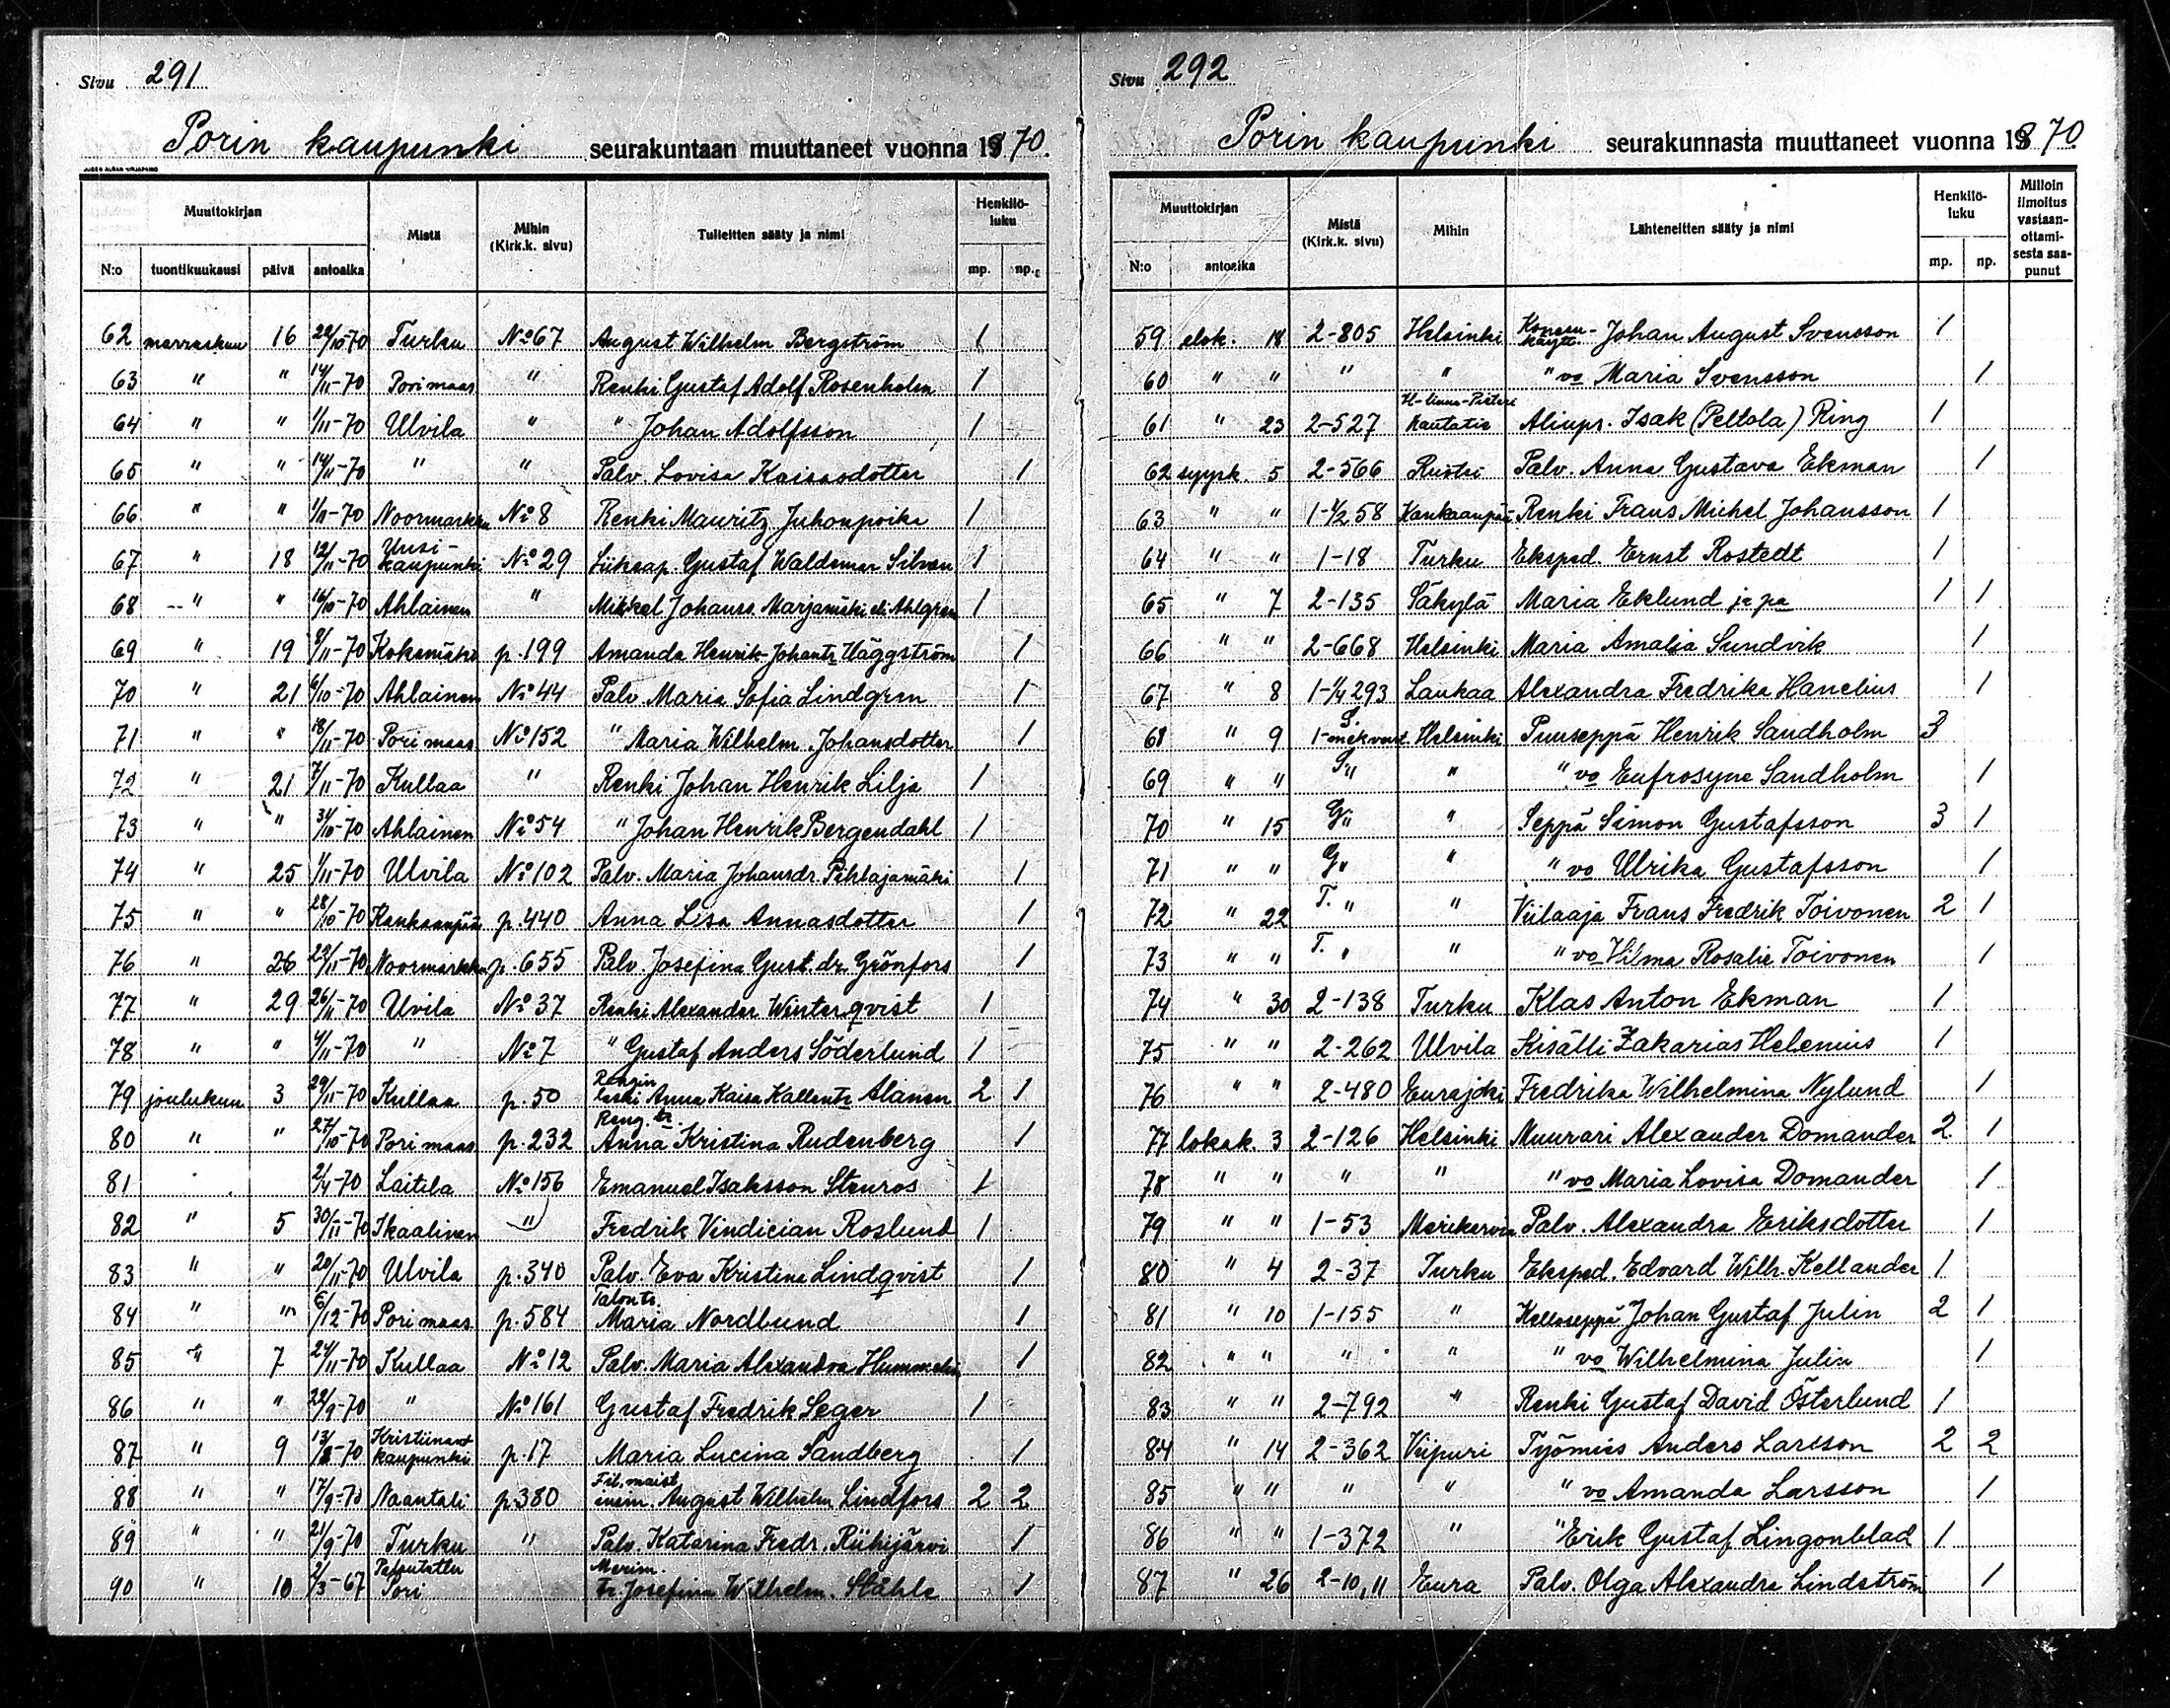 Sivu 291
Porin kaupunki seurakuntaan muuttaneet vuonna 1870.
Muuttokirjan Mistä Mihin (Kirk.k. sivu) Tulleitten sääty ja nimi Henkilö-luku
N:o tuontikuukausi päivä antoaika mp. np.
62 marraskuu 16 22/10-70 Turku No 67 August Wilhelm Bergström 1
63 " " 14/11-70 Pori maas " Renki Gustaf Adolf Rosenholm 1
64 " " 1/11-70 Ulvila " " Johan Adolfsson 1
65 " " 14/11-70 " " Palv. Lovisa Kaisasdotter 1
66 " " 1/11-70 Noormarkku No 8 Renki Mauritz Juhonpoika 1
67 " 18 12/11-70 Uusi-kaupunki No 29 Gustaf Waldemar Silven 1
68 " " 16/10-70 Ahlainen " Mikkel Johanss. Marjamäki eli Ahlgren 1
69 " 19 8/11-70 Kokemäki p. 199 Amanda Henrik-Johantr Häggström 1
70 " 21 6/10-70 Ahlainen No 44 Palv. Maria Sofia Lindgren 1
71 " " 18/11-70 Pori maas No 152 " Maria Wilhelm. Johansdotter 1
72 " 21 7/11-70 Kullaa " Renki Johan Henrik Lilja 1
73 " " 31/10-70 Ahlainen No 54 " Johan Henrik Bergendahl 1
74 " 25 1/11-70 Ulvila No 102 Palv. Maria Johansdr. Pihlajamäki 1
75 " " 28/10-70 Kankaanpää p. 440 Anna Lisa Annasdotter 1
76 " 26 23/11-70 Noormarkku p. 655 Palv. Josefina Gust. dr. Grönfors 1
77 " 29 26/11-70 Uvila No 37 Renki Alexander Winterqvist 1
78 " " 4/11-70 " No 7 " Gustaf Anders Söderlund 1
79 joulukuu 3 29/11-70 Kullaa p. 50 Rengin leski Anna Kaisa Kallentr Alanen 2 1
80 " " 27/10-70 Pori maas p. 232 Reng. tr. Anna Kristina Rudenberg 1
81 2/4-70 Laitila No 156 Emanuel Isaksson Stenros 1
82 " 5 30/11-70 Ikaalinen " Fredrik Vindician Roslund 1
83 " " 20/11-70 Ulvila p. 340 Palv. Eva Kristina Lindqvist 1
84 " " 6/12-70 Pori maas p. 584 Talontr. Maria Nordlund 1
85 " 7 24/11-70 Kullaa No 12 Palv. Maria Alexandra 1
86 " " 22/9-70 " No 161 Gustaf Fredrik Seger 1
87 " 9 13/8-70 Kristiinankaupunki p. 17 Maria Lucina Sandberg 1
88 " " 17/9-70 Naantali p. 380 Fil. maist. insin. August Wilhelm Lindfors 2 2
89 " " 21/9-70 Turku " Palv. Katarina Fredr. Riihijärvi 1
90 " 10 2/3-67 Pori Merim. tr Josefina Wilhelm. Ståhle 1
Sivu 292
Porin kaupunki seurakunnasta muuttaneet vuonna 1870.
Muuttokirjan Mistä (Kirk.k. sivu) Mihin Lähteneitten sääty ja nimi Henkilö-luku Milloin ilmoitus vastaan-ottami-sesta saa-punut
N:o antoaika mp. np.
59 elok. 18 2-805 Helsinki Koneenkäytt. Johan August Svensson 1
60 " " " " " vo Maria Svensson 1
61 " 23 2-527 Aliups. Isak (Peltola) Ring 1
62 syysk. 5 2-566 Ruotsi Palv. Anna Gustava Ekman 1
63 " " 1-1/2 58 Kankaanpää Renki Frans Michel Johansson 1
64 " " 1-18 Turku Eksped. Ernst Rostedt 1
65 " 7 2-135 Säkylä Maria Eklund ja pa 1 1
66 " " 2-668 Helsinki Maria Amalia Sundvik 1
67 " 8 1-1/4 293 Laukaa Alexandra Fredrika Hanelius 1
68 " 9 S. Helsinki Puuseppä Henrik Sandholm 3
69 " " S. " " " vo Eufrosyne Sandholm 1
70 " 15 G. " " Seppä Simon Gustafsson 3 1
71 " " G. " " " vo Ulrika Gustafsson 1
72 " 22 T. " " Viilaaja Frans Fredrik Toivonen 2 1
73 " " T. " " " vo Hilma Rosalie Toivonen 1
74 " 30 2-138 Turku Klas Anton Ekman 1
75 " " 2-262 Ulvila Kisälli Zakarias Helenius 1
76 " " 2-480 Eurajoki Fredrika Wilhelmina Nylund 1
77 lokak. 3 2-126 Helsinki Muurari Alexander Domander 2 1
78 " " " " " vo Maria Lovisa Domander 1
79 " " 1-53 Merikarvia Palv. Alexandra Eriksdotter 1
80 " 4 2-37 Turku Eksped. Edvard Wilh. Kellander 1
81 " 10 1-155 " Kelloseppä Johan Gustaf Julin 2 1
82 " " " " " vo Wilhelmina Julin 1
83 " " 2-792 " Renki Gustaf David Österlund 1
84 " 14 2-362 Viipuri Työmies Anders Larsson 2 2
85 " " " " " vo Amanda Larsson 1
86 " " 1-372 " " Erik Gustaf Lingonblad 1
87 " 26 2-10, 11 Eura Palv. Olga Alexandra Lindström 1